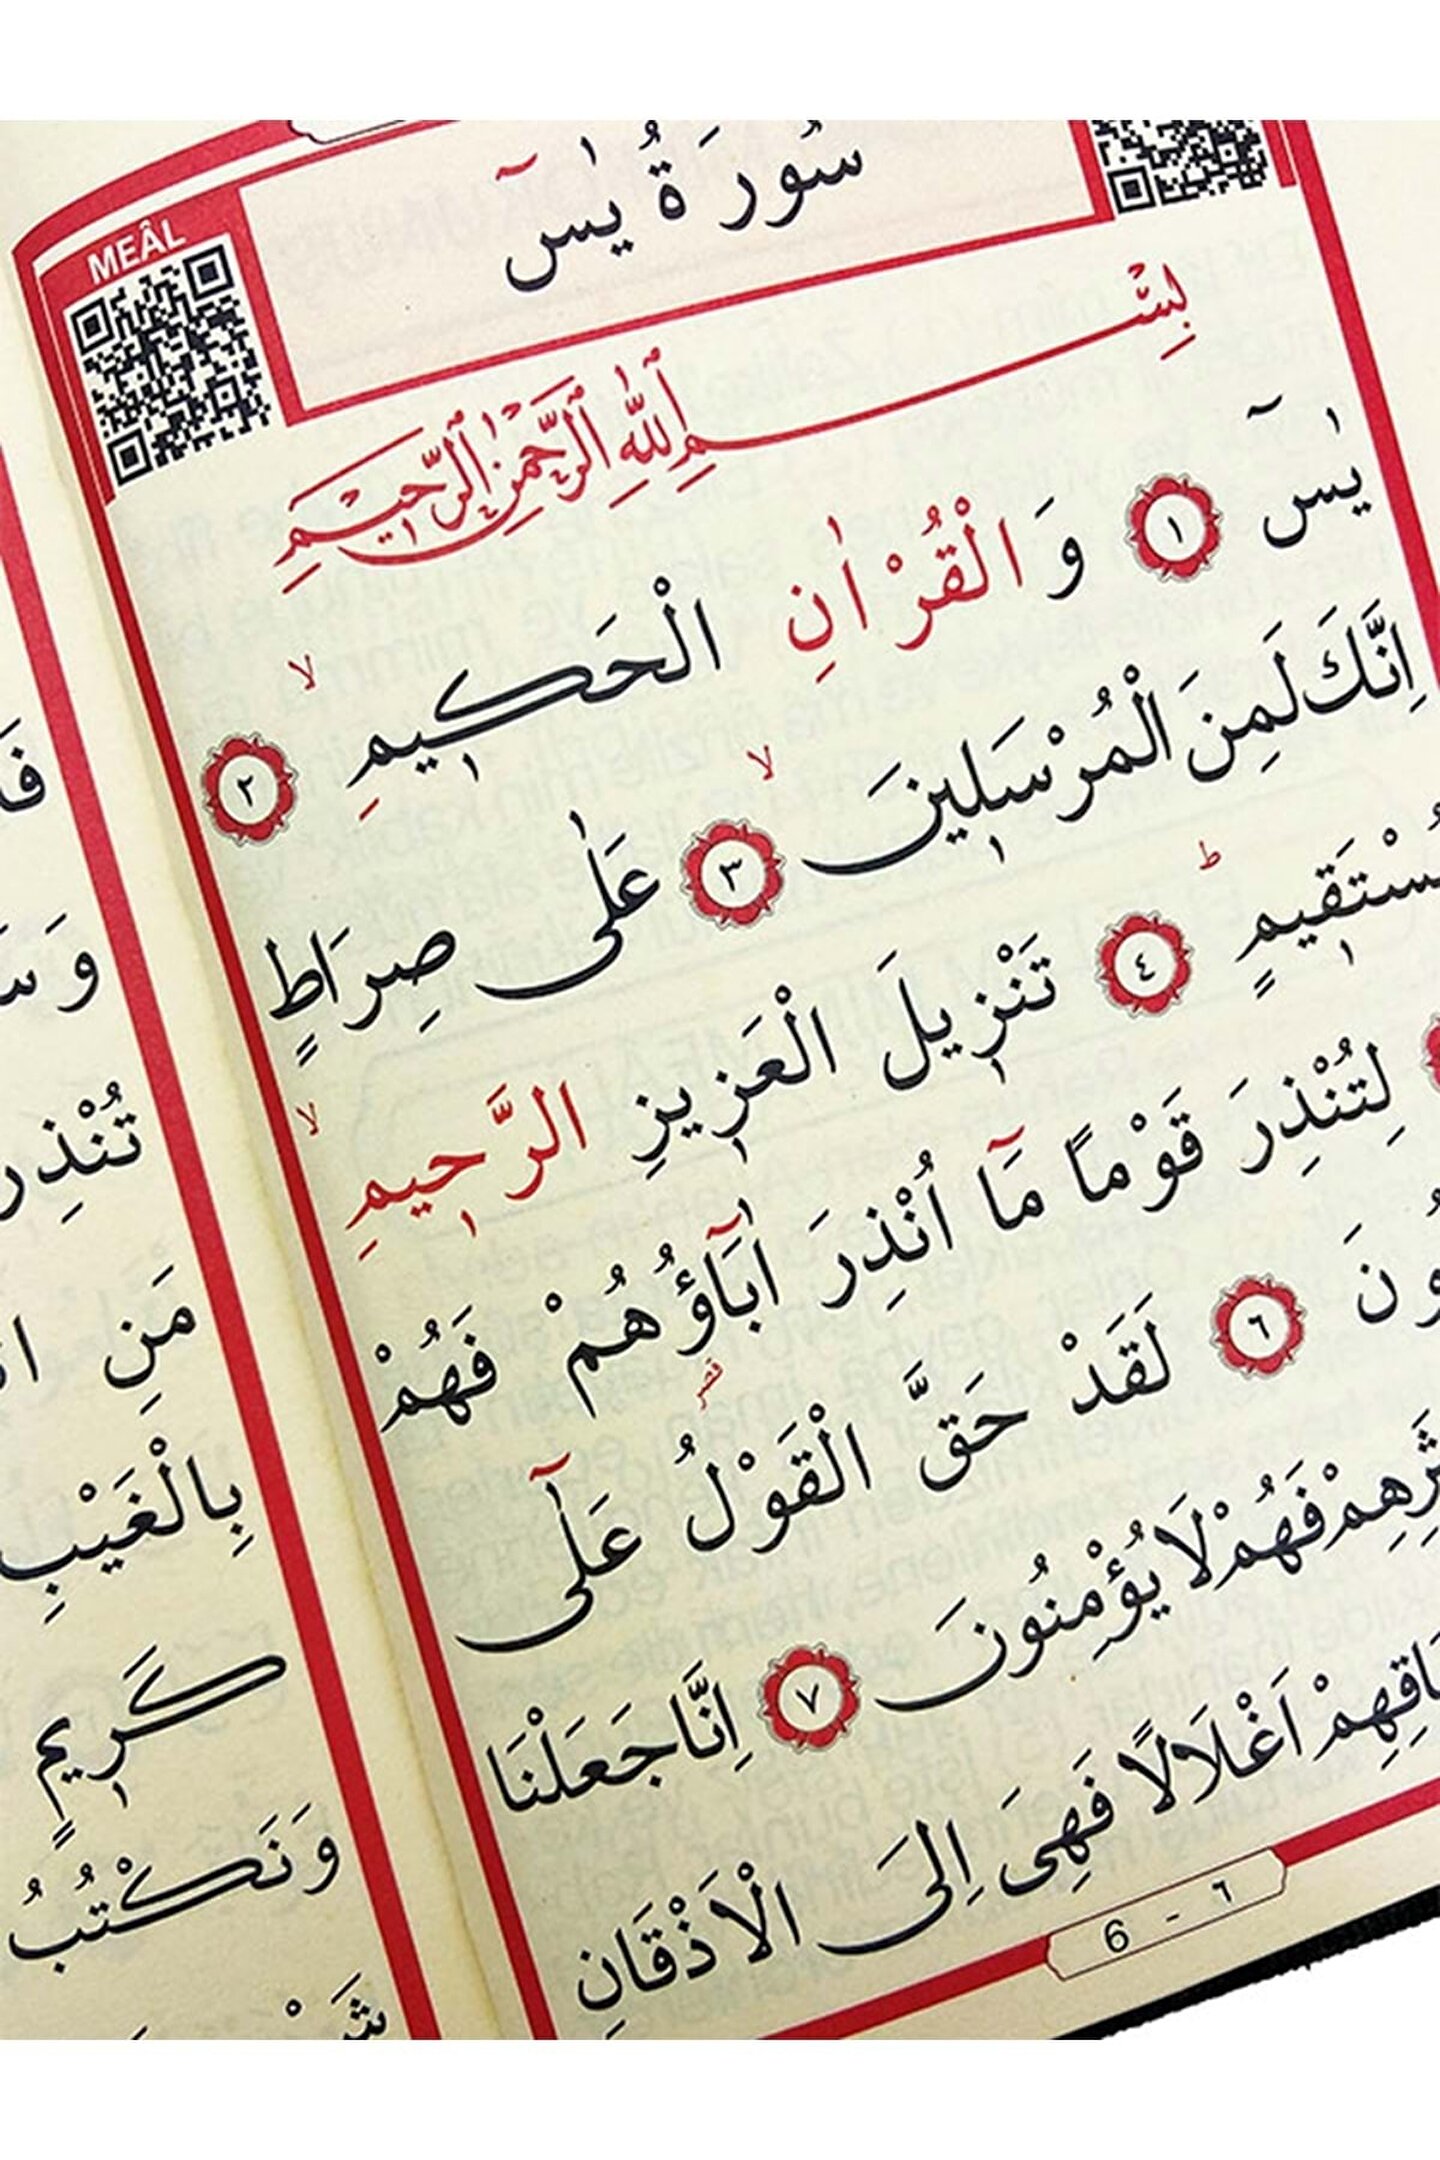 سُورَةُ يٰسٓ
MEÂL
بِسْمِ اللّٰهِ الرَّحْمٰنِ الرَّحِيمِ
يٰسٓ ﴿١﴾ وَالْقُرْاٰنِ الْحَكِيمِۙ ﴿٢﴾
اِنَّكَ لَمِنَ الْمُرْسَلِينَۙ ﴿٣﴾ عَلٰى صِرَاطٍ
تَنْزِيلَ الْعَزِيزِ الرَّحِيمِۙ ﴿٤﴾ مُسْتَقِيمٍۜ
لِتُنْذِرَ قَوْمًا مَٓا اُنْذِرَ اٰبَٓاؤُ۬هُمْ فَهُمْ
﴿٦﴾ لَقَدْ حَقَّ الْقَوْلُ عَلٰٓى
فَهُمْ لَا يُؤْمِنُونَ ﴿٧﴾ اِنَّا جَعَلْنَا
اَغْلَالًا فَهِىَ اِلَى الْاَذْقَانِ
6 - ٦
تُنْذِرُ
مَنِ
بِالْغَيْبِ
كَرِيمٍ
وَنَكْتُبُ